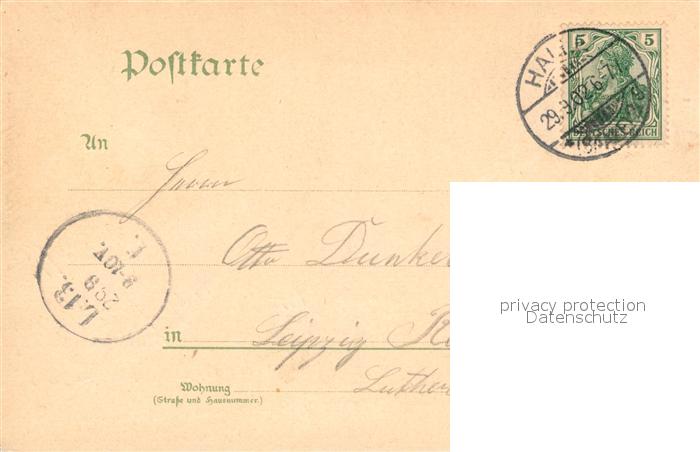 5 5
Postkarte
HALLE
29.9.02.6-7
(SAALE)
DEUTSCHES REICH
An
Herrn
Otto Dunker
L.13.
29 9
9-10V.
in Leipzig
Luther
Wohnung
(Straße und Hausnummer.)
privacy protection
Datenschutz